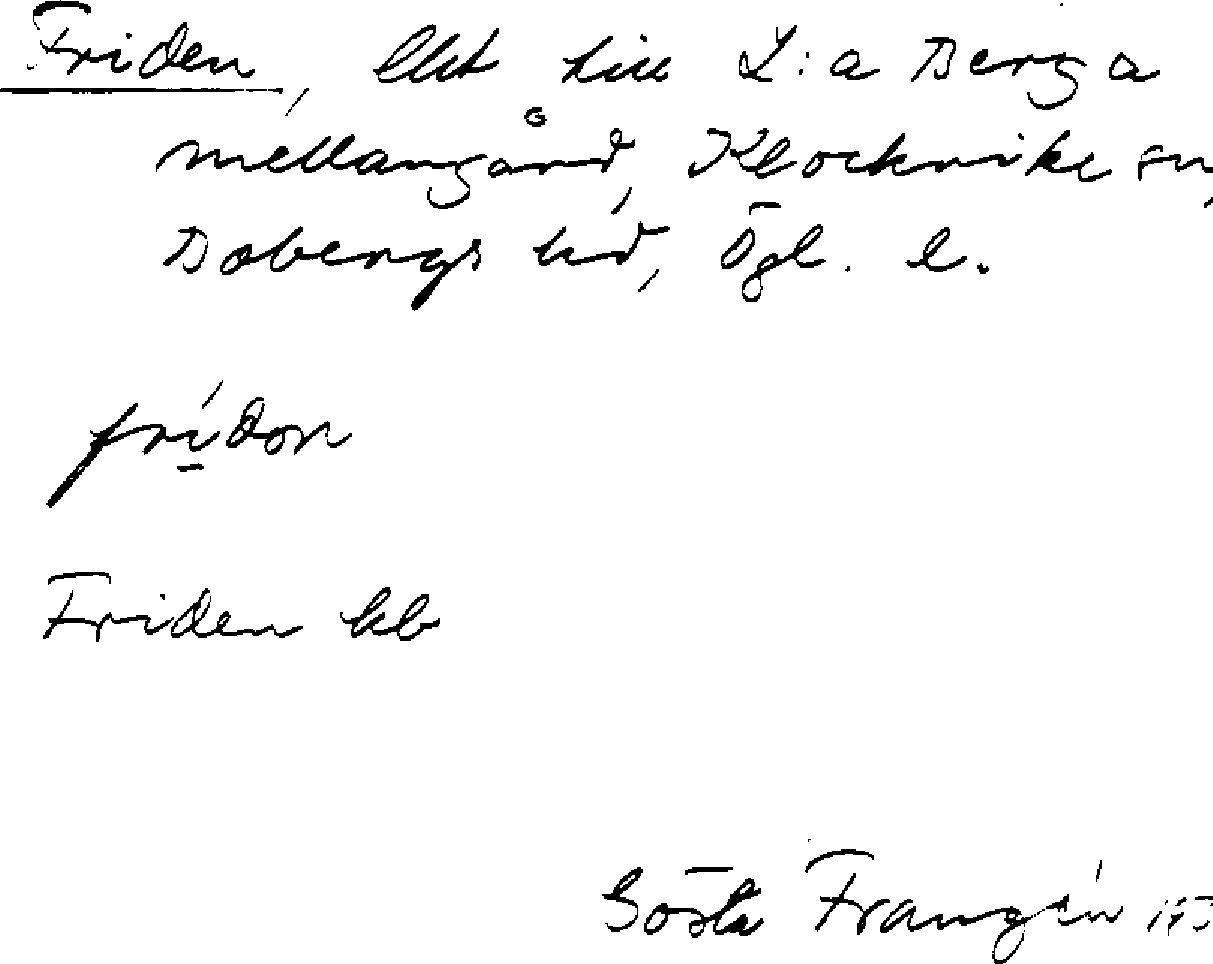 Friden, lht till L:a Berga
mellangård, Klockrike sn,
Bobergs hd, Ögl. l.
fridon
Friden kb
Gösta Franzén